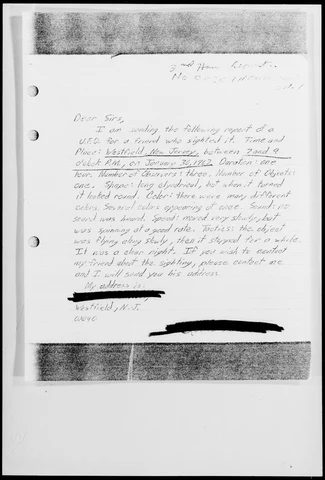 2nd Hand Report
No
Dear Sirs,
I am sending the following report of a
U.F.O. for a friend who sighted it. Time and
Place: Westfield, New Jersey, between 7 and 9
o'clock P.M., on January 30, 1967. Duration: one
hour. Number of Observers: three. Number of Objects:
one. Shape: long cylindrical, but when it turned
it looked round. Color: there were many different
colors. Several colors appearing at once. Sound: no
sound was heard. Speed: moved very slowly, but
was spinning at a good rate. Tactics: the object
was flying along slowly, then it stopped for a while.
It was a clear night. If you wish to contact
my friend about the sighting, please contact me
and I will send you his address.
My address is:
Westfield, N.J.